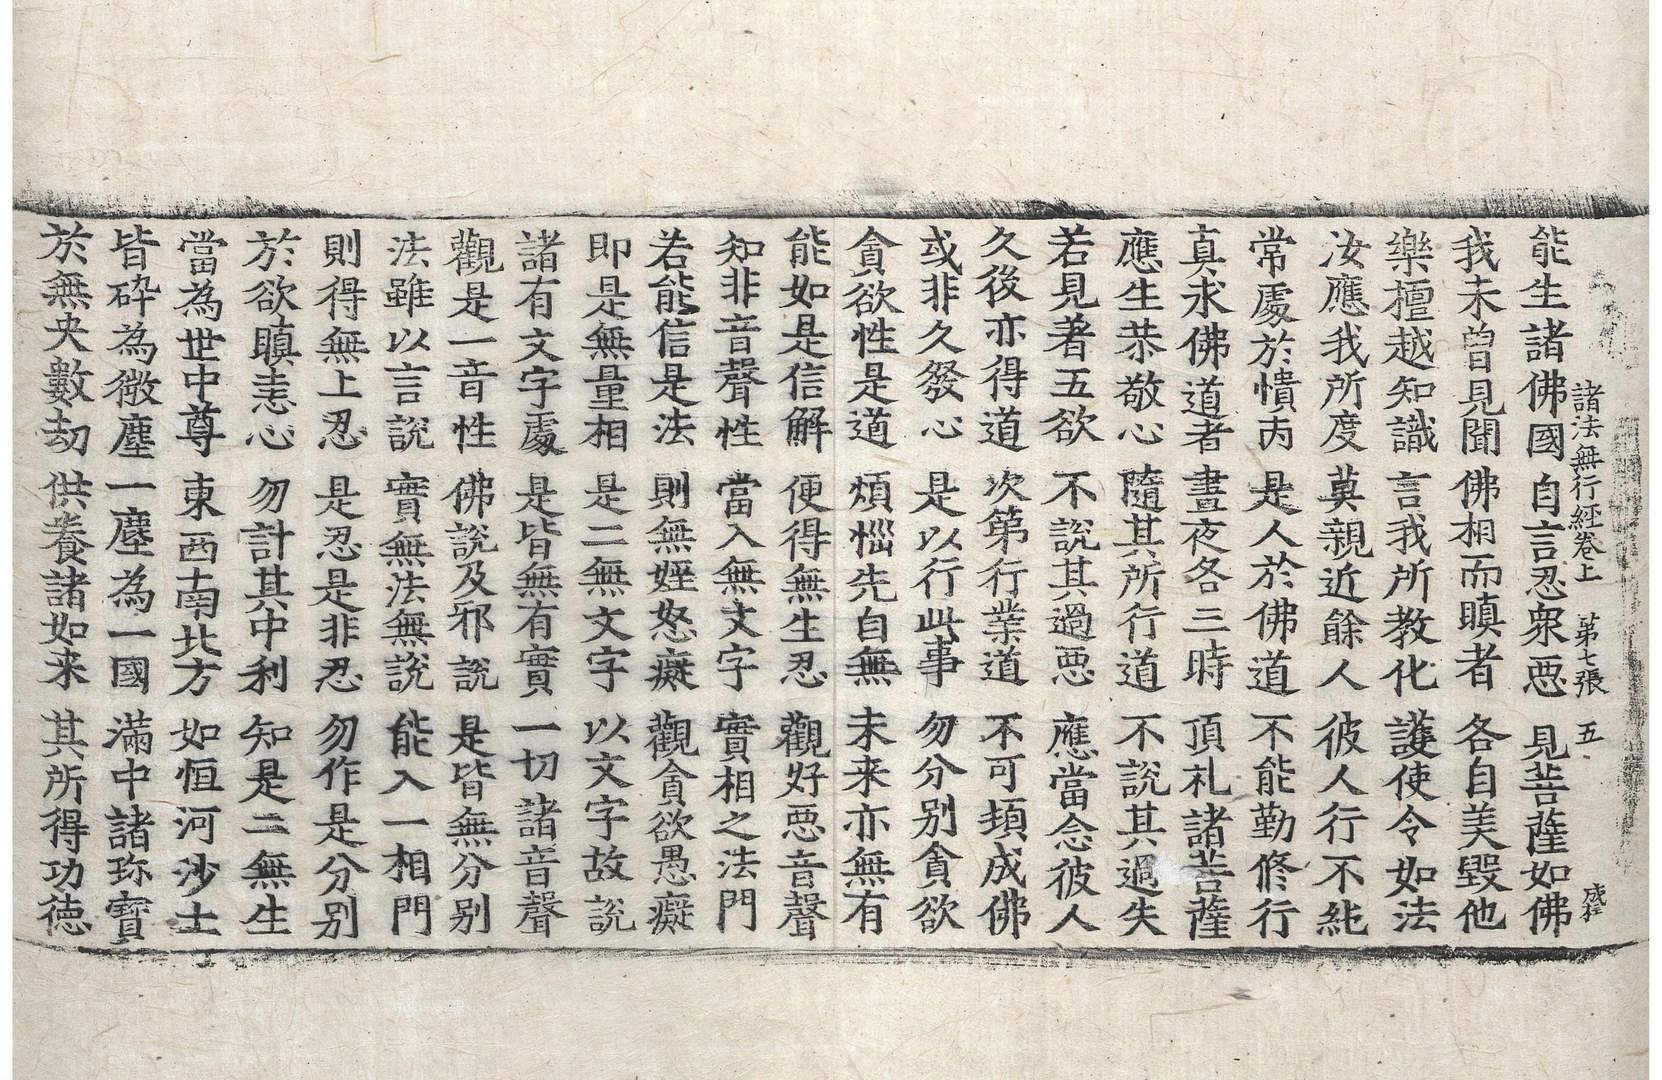 諸法無行経卷上 第七張 五
能生諸佛國 自言忍衆惡 見菩薩如佛
我未曽見聞 佛相而瞋者 各自美毀他
樂檀越知識 言我所教化 護使令如法
汝應我所度 莫親近餘人 彼人行不純
常處於憒丙 是人於佛道 不能勤修行
真求佛道者 晝夜各三時 頂礼諸菩薩
應生恭敬心 隨其所行道 不說其過失
若見著五欲 不說其過惡 應當念彼人
久後亦得道 次第行業道 不可頓成佛
或非久發心 是以行此事 勿分別貪欲
貪欲性是道 煩惱先自無 未来亦無有
能如是信解 便得無生忍 觀好惡音聲
知非音聲性 當入無文字 實相之法門
若能信是法 則無婬怒癡 觀貪欲愚癡
即是無量相 是二無文字 以文字故說
諸有文字處 是皆無有實 一切諸音聲
觀是一音性 佛說及邪說 是皆無分別
法雖以言說 實無法無說 能入一相門
則得無上忍 是忍是非忍 勿作是分別
於欲瞋恚心 勿計其中利 知是二無生
當為世中尊 東西南北方 如恒河沙土
皆碎為微塵 一塵為一國 滿中諸珎寶
於無央數劫 供養諸如来 其所得功德